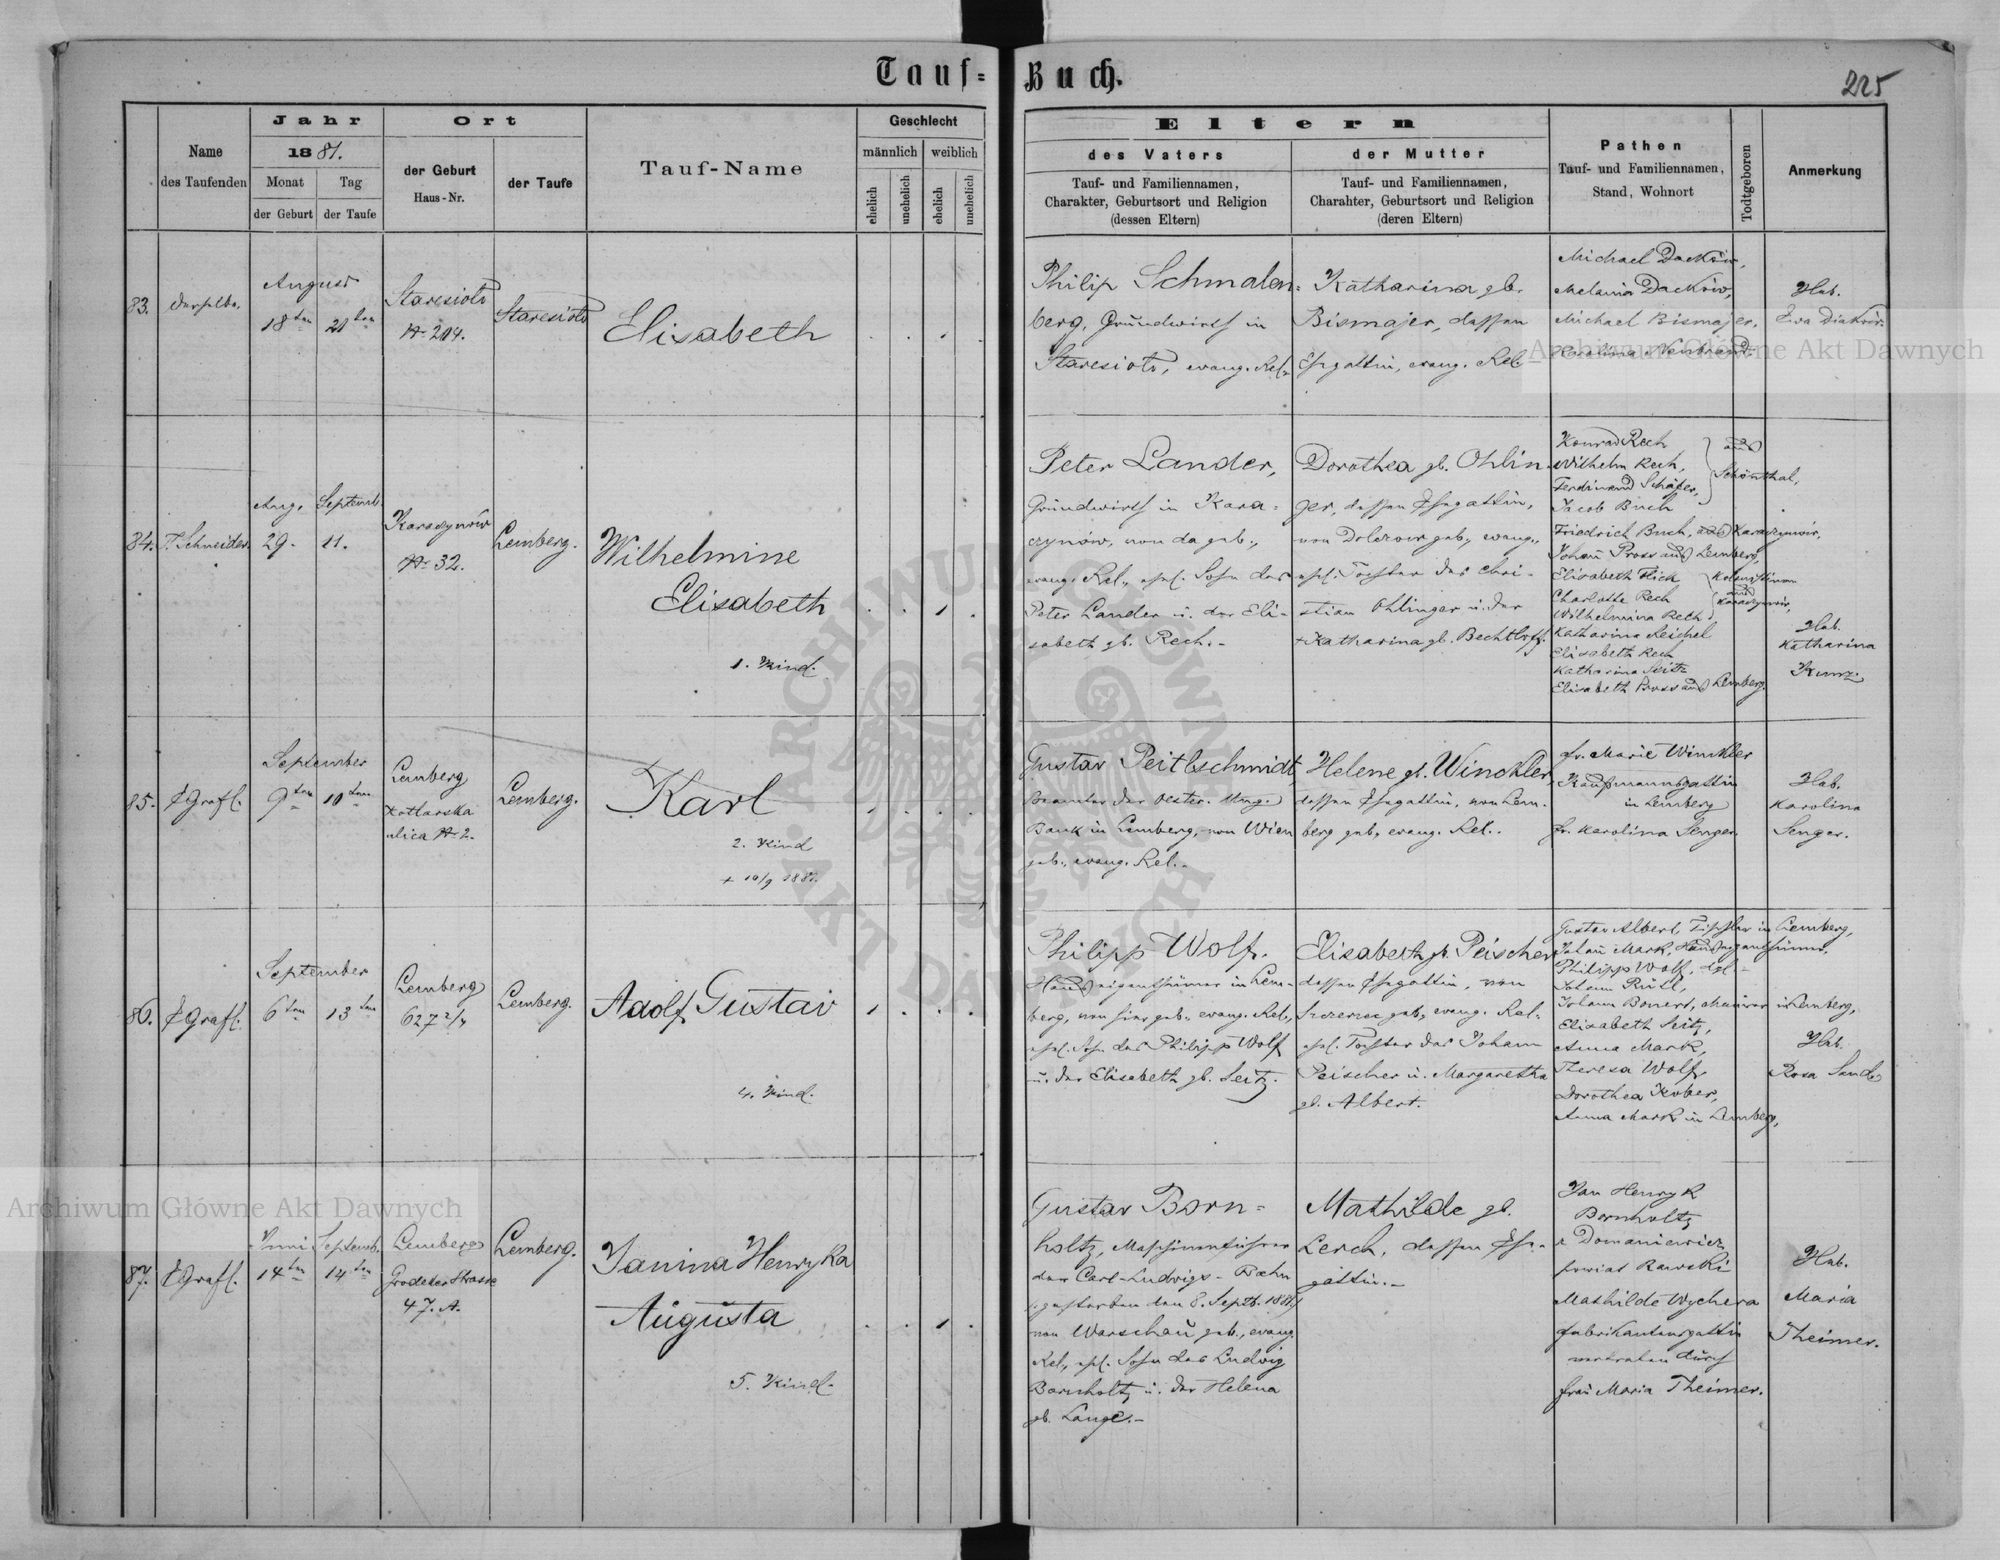 Tauf-Buch.
225
Name
des Taufenden
Jahr
1881.
Monat
der Geburt
Tag
der Taufe
Ort
der Geburt
Haus-Nr.
der Taufe
Tauf-Name
Geschlecht
männlich
weiblich
ehelich
unehelich
ehelich
unehelich
Eltern
des Vaters
Tauf- und Familiennamen,
Charakter, Geburtsort und Religion
(dessen Eltern)
der Mutter
Tauf- und Familiennamen,
Charahter, Geburtsort und Religion
(deren Eltern)
Pathen
Tauf- und Familiennamen,
Stand, Wohnort
Todtgeboren
Anmerkung
83.
derselbe.
August
18ten
21ten
Staresioło
No 204.
Staresioło
Elisabeth
Philip Schmalen-
berg, Grundwirth in
Staresioło, evang. Rel.
Katharina gb.
Bismajer, dessen
Ehegattin, evang. Rel.
Michael Daćków,
Melania Daćków,
Michael Bismajer,
Karolina Neubrand.
Heb.
Ewa Diaków.
84.
P. Schneider.
Aug.
29.
Septemb.
11.
Karaczynów
No 32.
Lemberg.
Wilhelmine
Elisabeth
1. Kind.
Peter Lander,
Grundwirth in Kara-
czynów, von da geb.,
evang. Rel., ehel. Sohn des
Peter Lander u. der Eli-
sabeth gb. Rech.-
Dorothea gb. Ohlin-
ger, dessen Ehegattin,
von geb., evang.,
ehel. Tochter des Chri-
stian Ohlinger u. der
+ Katharina gb. Bechtloff.
Konrad Rech
Wilhelm Rech,
Ferdinand Schäfer,
aus
Schönthal,
Jacob Buch
Friedrich Buch, aus Karaczynów,
Johañ Pross aus Lemberg,
Elisabeth Flick
Charlotte Rech
aus
Karaczynów,
Wilhelmina Rech,
Katharina Reichel
Elisabeth Rech
Katharina Seitz
Elisabeth Pross aus Lemberg.
Heb.
Katharina
Kunz.
85.
E Grafl.
September
9ten
10ten
Lemberg
Kotlarska
ulica No 2.
Lemberg.
Karl
2. Kind
+ 10/9 1881.
Gustav Peitlschmidt,
Beamter der Oester. Ung.
Bank in Lemberg, von Wien
geb., evang. Rel.-
Helene gb. Winckler,
dessen Ehegattin, von Lem-
berg geb., evang. Rel.
Fr. Marie Winckler
Kaufmannsgattin
in Lemberg
Fr. Karolina Senger.
Heb.
Karolina
Senger.
86.
E Grafl.
September
6ten
13ten
Lemberg
627 2/4
Lemberg.
Adolf Gustav
4. Kind.
Philipp Wolf,
Hauseigenthümer in Lem-
berg, von hier geb., evang. Rel.,
ehel. Sohn des Philipp Wolf
u. der Elisabeth gb. Seitz.
Elisabeth gb. Peischer
dessen Ehegattin, von
Szczerzec geb., evang. Rel.
ehel. Tochter des Johann
Peischer u. Margaretha
gb. Albert.
Gustav Albert, Tischler in Lemberg,
Johañ Mark, Hauseigenthümer,
Philipp Wolf,
Johann
Johann Bonert, Maurer in Lemberg,
Elisabeth Seitz,
Anna Mark,
Theresa Wolf,
Dorothea Kober,
Anna Mark in Lemberg,
Heb.
Rosa Sand
87.
E Grafl.
Juni
14ten
Septemb.
14ten
Lemberg
Grodeker Strasse
47. A.
Lemberg.
Janina Henryka
Augusta
5. Kind.
Gustav Born-
holtz, Maschinenführer
der Carl-Ludwigs-Bahn
gestorben den 8. Septb. 1881,
von Warschau geb., evang.
Rel., ehel. Sohn des Ludwig
Bornholtz u. der Helena
gb. Lange.-
Mathilde gb.
Lerch, dessen Ehe-
gattin.-
Jan Henryk
Bornholtz
z Domaniewicz
powiat Rawski
Mathilde Wychera
Fabrikantensgattin
vertreten durch
Frau Maria Theimer.
Heb.
Maria
Theimer.
Archiwum Główne Akt Dawnych
Archiwum Główne Akt Dawnych
ARCHIWUM GŁÓWNE AKT DAWNYCH